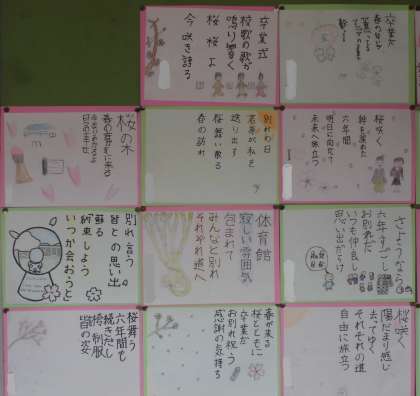 卒業式
校歌の歌が
鳴り響く
桜桜よ
今咲き誇る
卒業だ
桜咲く
絆を深めた
六年間
明日に向かって
未来へ旅立つ
別れの日
送り出す
桜舞い散る
春の訪れ
桜の木
さようなら
六年すごし
お別れだ
いつも仲良し
思い出だらけ
体育館
寂しい雰囲気
包まれて
みんなと別れ
それぞれ道へ
別れ言う
皆との思い出
蘇る
約束しよう
いつか会おうと
桜咲く
陽だまり感じ
去ってゆく
それぞれの道
自由に旅立つ
春が来る
桜とともに
卒業だ
お別れ祝う
感謝の気持ち
桜舞う
六年間も
続きだし
袴制服
皆の姿